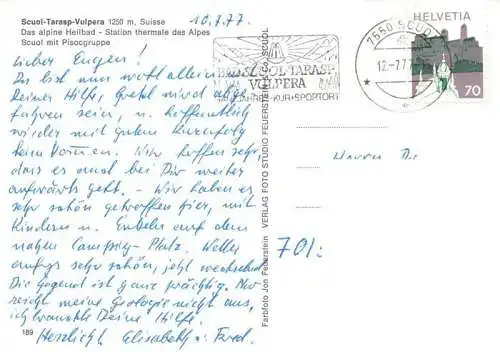 Scuol-Tarasp-Vulpera 1250 m, Suisse
Das alpine Heilbad - Station thermale des Alpes
Scuol mit Pisocgruppe
10.7.77.
Lieber Eugen!
Du bist nun wohl allein
Deiner Hilfe, Gretl wird abge-
fahren sein, u. hoffentlich
wieder mit gutem Kurerfolg
heim kommen. Wir hoffen sehr
dass es auch bei Dir weiter
aufwärts geht. - Wir haben es
sehr schön getroffen hier, mit
Kindern u. Enkeln auf dem
nahen Camping-Platz. Wetter
anfgs sehr schön, jetzt wechselnd
Die Gegend ist ganz prächtig. Nur
reicht meine Geologie nicht aus,
ich brauchte Deine Hilfe.
Herzlichst Elisabeth u. Fred.
189
Farbfoto Jon Feuerstein VERLAG FOTO STUDIO FEUERSTEIN SCUOL
BAD SCUOL TARASP
VULPERA
KUR + SPORTORT
7550 SCUOL
12.-7.77
HELVETIA
70
701: